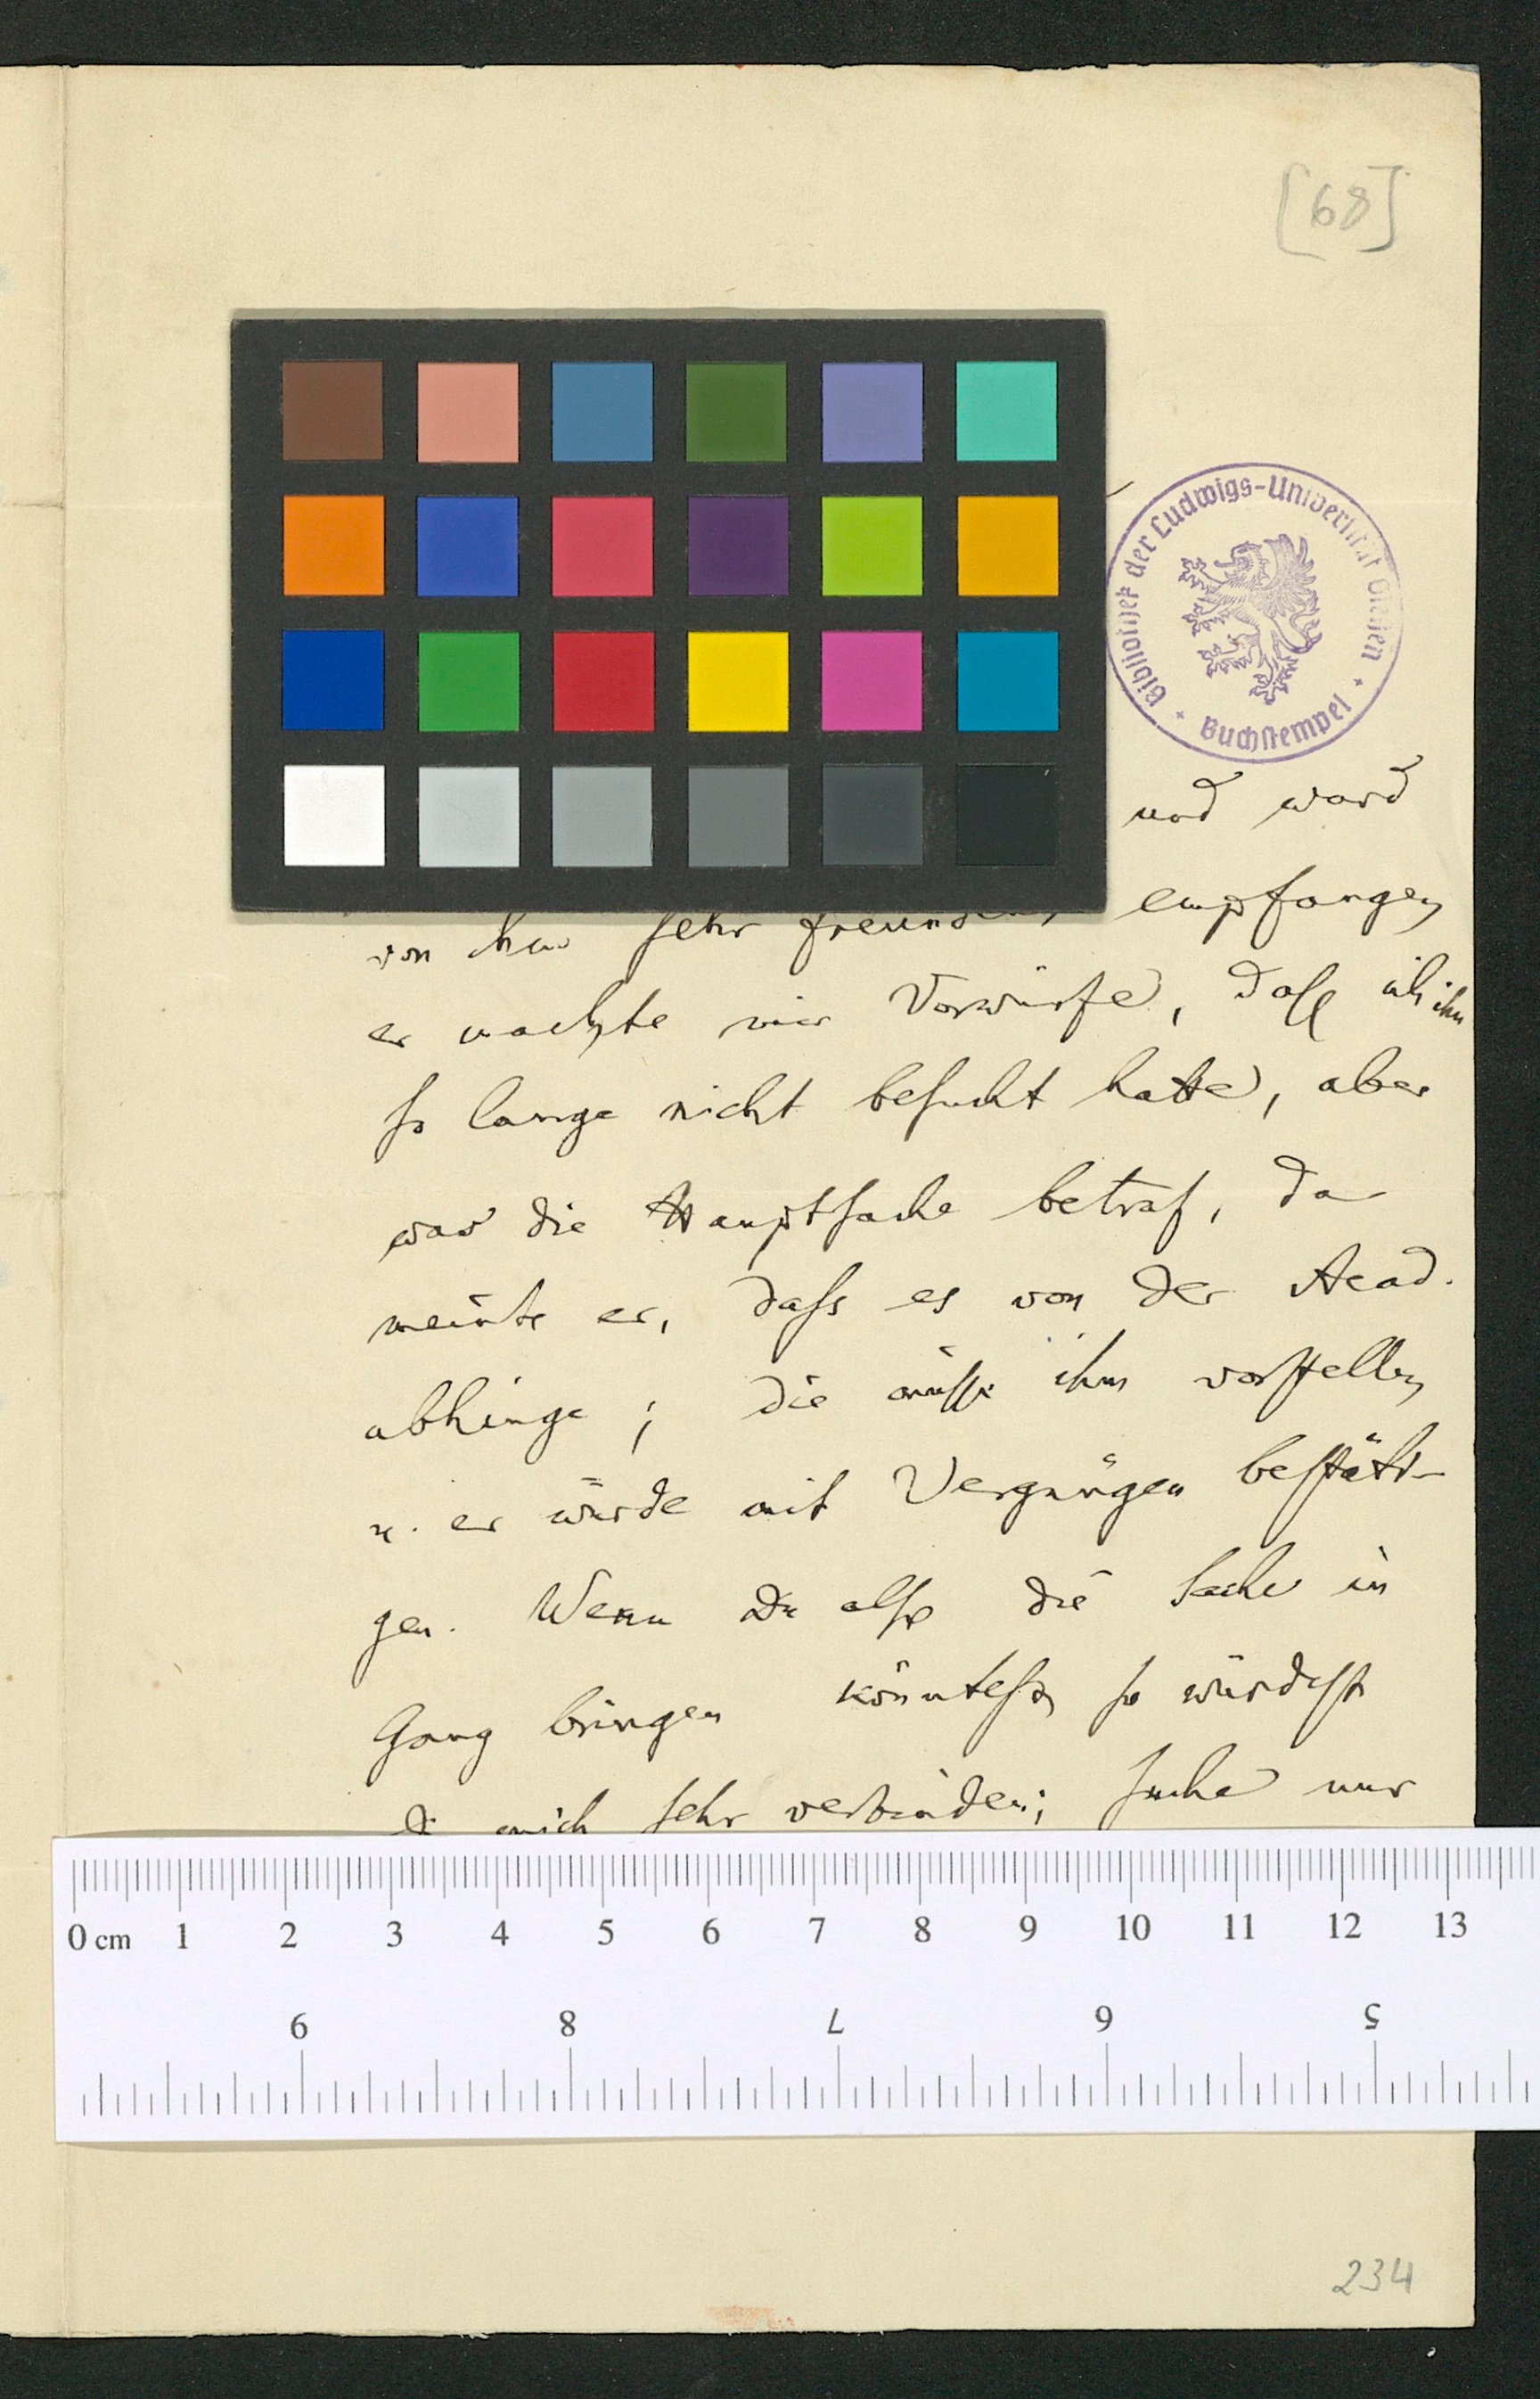 [68]
Bibliothek der Ludwigs-Universität Gießen
Buchstempel
und ward
von ihm sehr empfangen
er machte mir Vorwürfe, daß ich ihn
so lange nicht besucht hatte, aber
was die Hauptsache betraf, da
meinte er, dass es von der Acad.
abhinge; die müsse ihm vorstellen
u. er würde mit Vergnügen bestäti-
gen. Wenn Du also die Sache in
Gang bringen könntest, so würdest
mich sehr verbinden; suche nur
0 cm 1 2 3 4 5 6 7 8 9 10 11 12 13
9 8 7 6 5
234